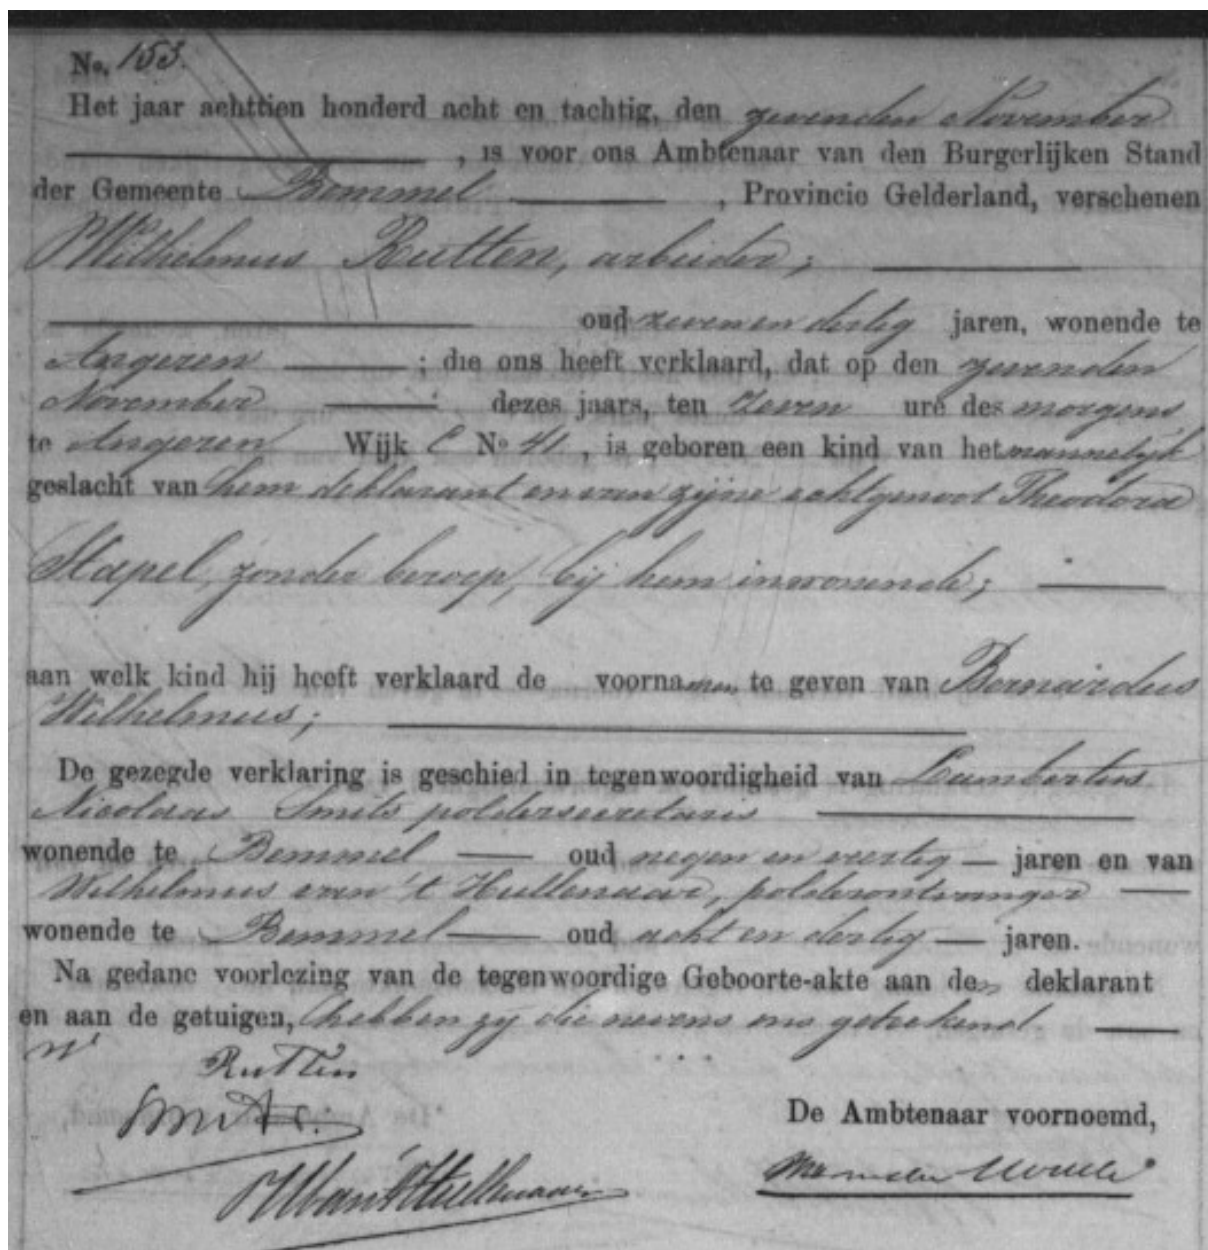 No. 153.
Het jaar achttien honderd acht en tachtig, den zevenden November
, is voor ons Ambtenaar van den Burgerlijken Stand
der Gemeente Bemmel , Provincie Gelderland, verschenen
Wilhelmus Rutten, arbeider;
oud zeven en dertig jaren, wonende te
Angeren ; die ons heeft verklaard, dat op den zevenden
November dezes jaars, ten zeven ure des morgens,
te Angeren Wijk C No 41, is geboren een kind van het mannelijk
geslacht van hem deklarant en van zijne echtgenoot Theodora
Stapel, zonder beroep, bij hem inwonende;
aan welk kind hij heeft verklaard de voornamen te geven van Bernardus
Wilhelmus;
De gezegde verklaring is geschied in tegenwoordigheid van Lambertus
Nicolaas Smits poldersecretaris
wonende te Bemmel oud negen en veertig jaren en van
Wilhelmus van 't Hullenaar, polderontvanger
wonende te Bemmel oud acht en dertig jaren.
Na gedane voorlezing van de tegenwoordige Geboorte-akte aan den deklarant
en aan de getuigen, hebben zij die nevens ons geteekend
W Rutten
Smits.
De Ambtenaar voornoemd,
W van 't Hullenaar